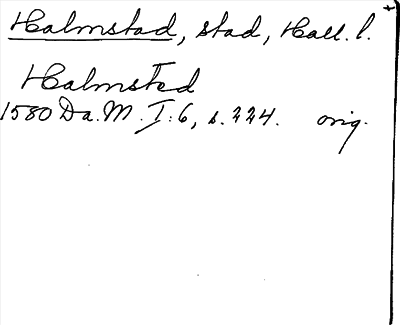 Halmstad, stad, Hall. l.
Halmsted
1580 Da. M. I:6, s. 224. orig.